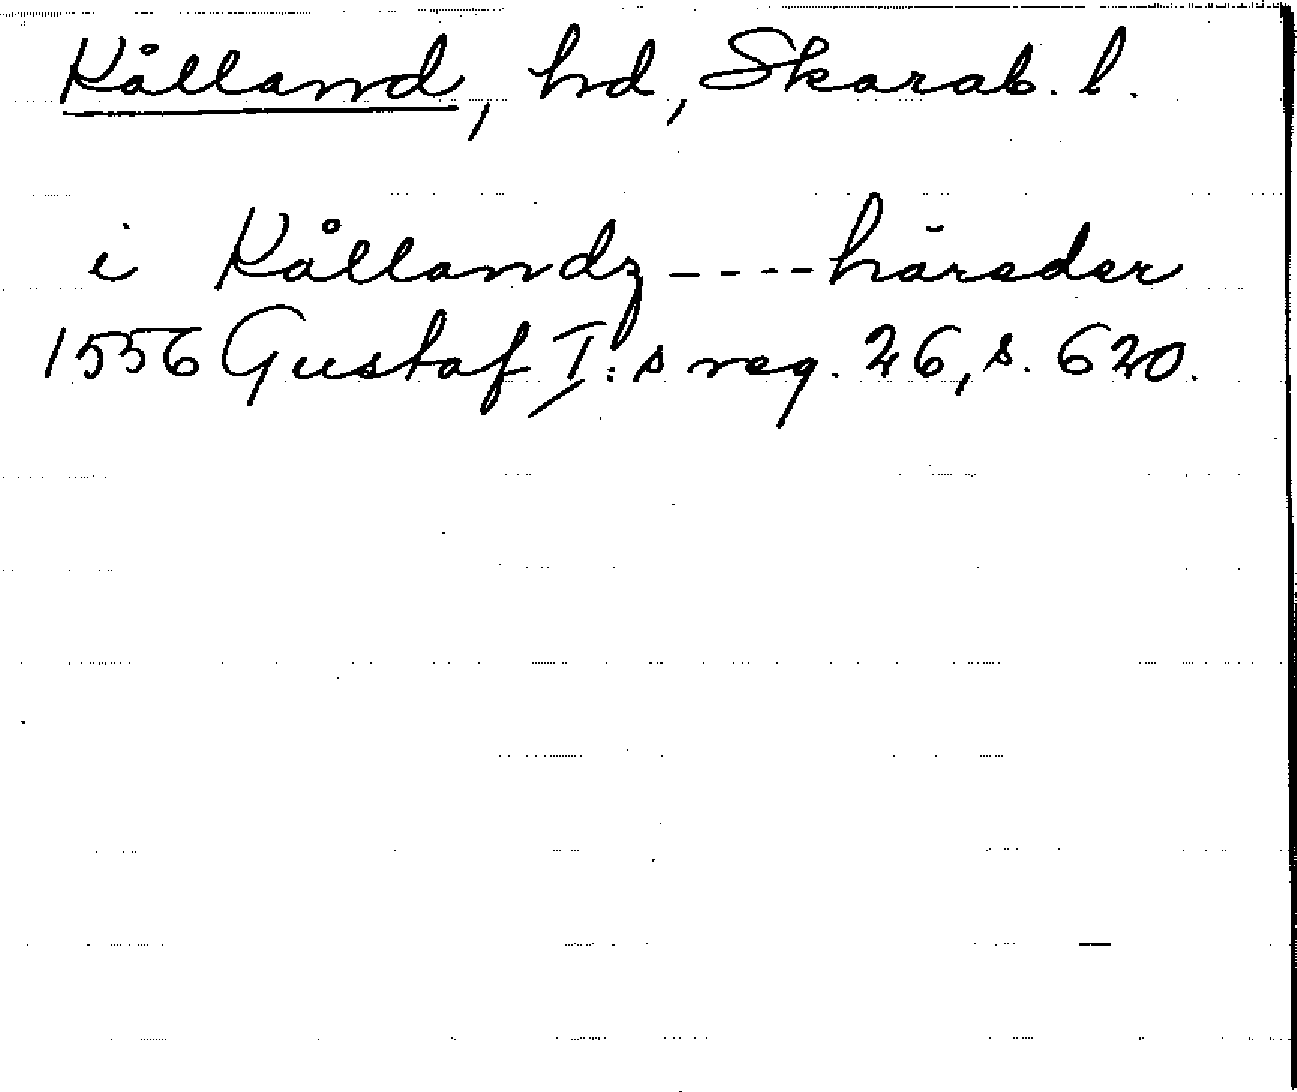 Kålland, hd, Skarab. l.
i Kållandz ---- häreder
1556 Gustaf I:s reg. 26, s. 620.